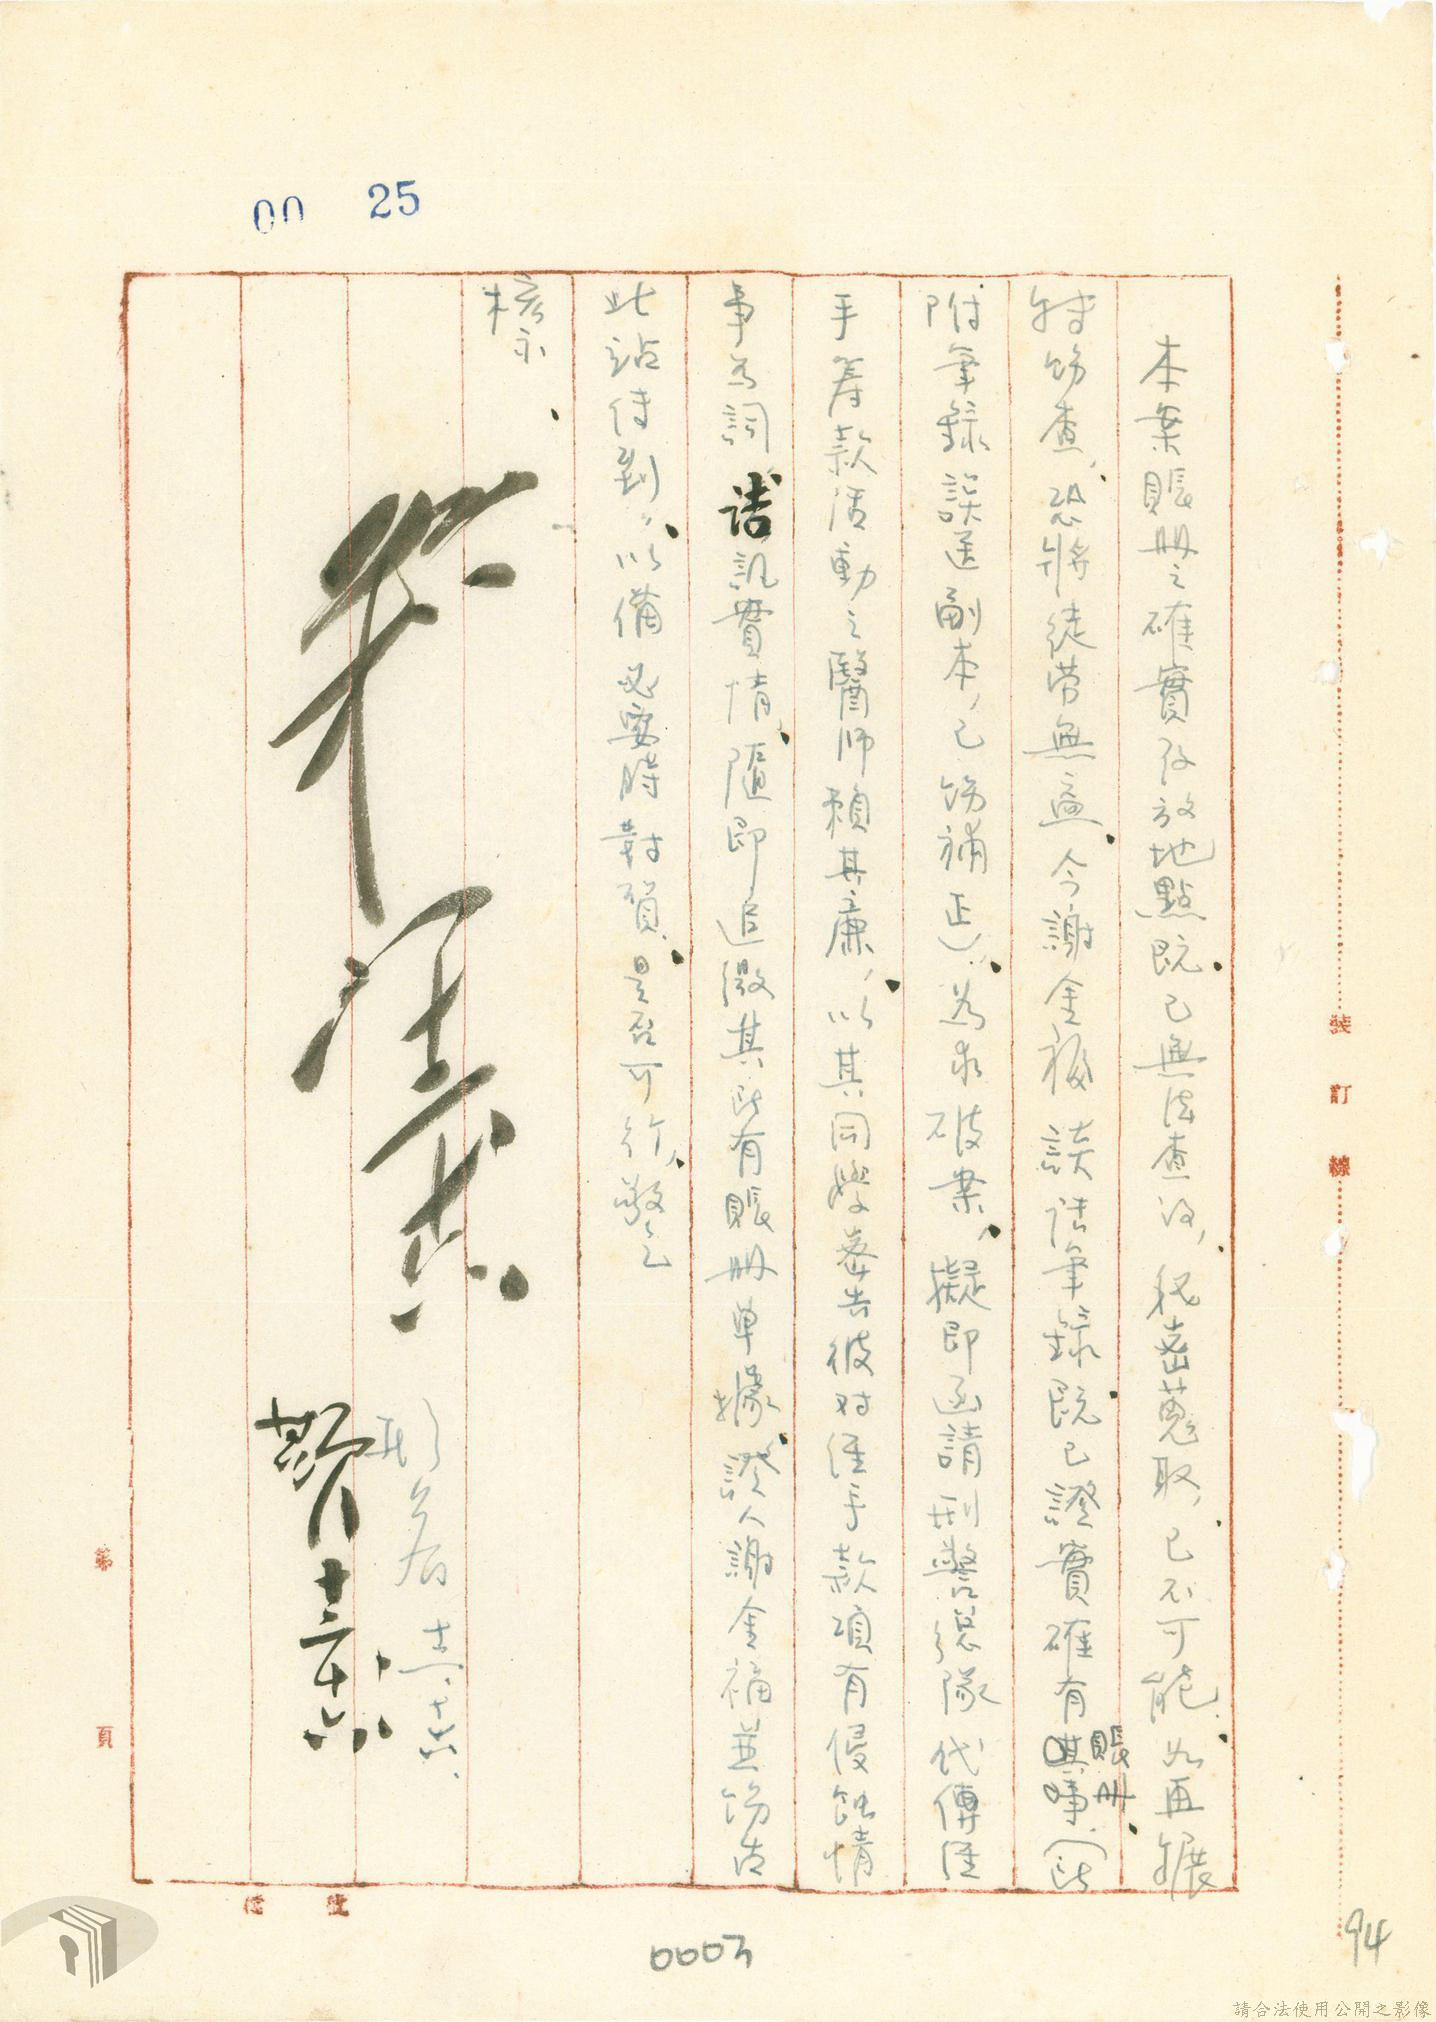 00 25
本案賬册之確實存放地點既已無法查悉，秘密蒐取，已不可能，如再輾
轉飭查，恐將徒勞無益，今謝金福談話筆錄既已證實確有賬册（所
附筆錄誤送副本，已飭補正），為求破案，擬即函請刑警總隊代傳經
手籌款活動之醫師賴其廉，以其同學密告彼对經手款項有侵蝕情
事為詞，詰訊實情，隨即追繳其所有賬册單據，證人謝金福並飭由
此站侍到，以備必要時對質，是否可行，敬乞
核示
十二、十六
十二、十六
裝訂線
第 頁
0003
94
請合法使用公開之影像